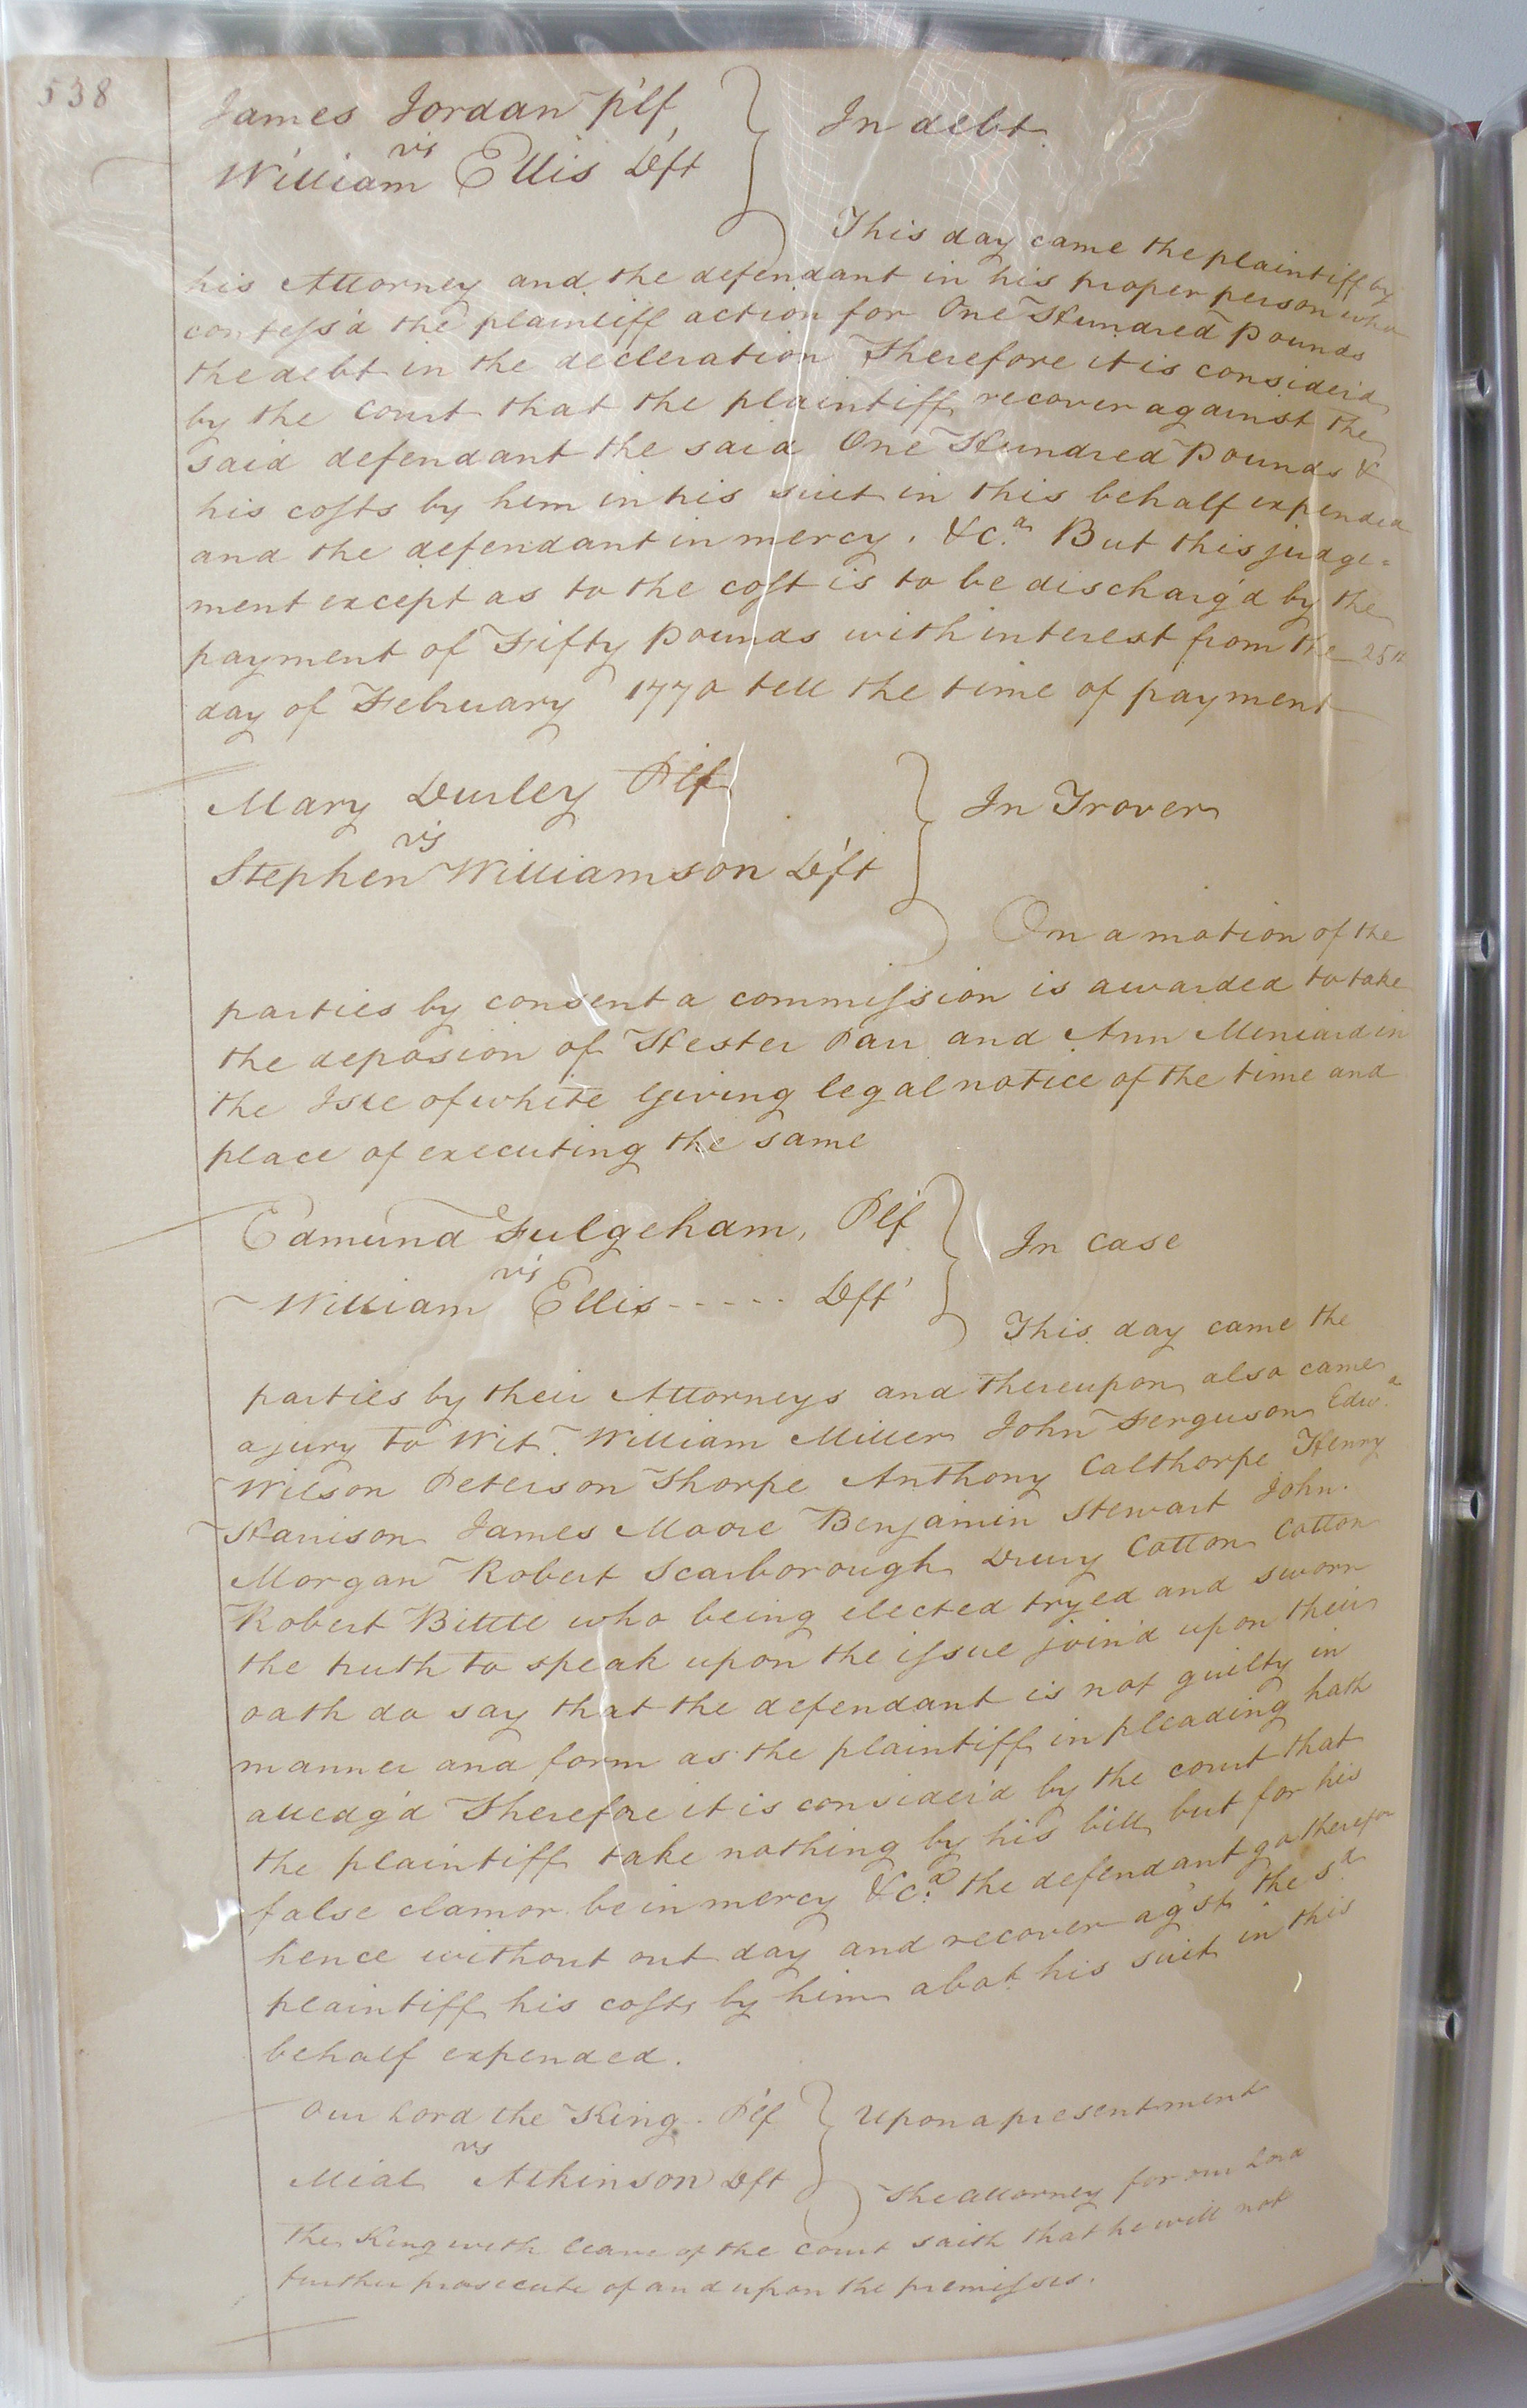 538
James Jordan Plf
vs
William Ellis Dft
In debt.
This day came the plaintiff by
his Attorney and the defendant in his proper person who
confess'd the plaintiff action for One Hundred Pounds
the debt in the decleration Therefore it is consider'd
by the Court that the plaintiff recover against the
said defendant the said One Hundred Pounds &
his costs by hem in his suit in this behalf expended
and the defendant in mercy. &c.a But this judge-
ment except as to the cost is to be discharg'd by the
payment of Fifty Pounds with interest from the 25th
day of February 1770 tell the time of payment
Mary Durley Plf
vs
Stephen Williamson Dft
In Trover
On a motion of the
parties by consent a commission is awarded to take
the deposion of Hester Parr and Ann Meniard in
the Isle of white Giving legal notice of the time and
place of executing the same
Edmund Fulgeham, Plf
vs
William Ellis ----- Dft
In Case
This day came the
parties by their Attorneys and thereupon also came
a jury to Wit. William Miller John Ferguson Edw.d
Wilson Peterson Thorpe Anthony Calthorpe Henry
Harrison James Moore Benjamin Stewart John
Morgan Robert Scarborough Drury Cotton Cotton
Robert Bittle who being elected tryed and sworn
the truth to speak upon the issue join'd upon their
oath do say that the defendant is not guilty in
manner and form as the plaintiff in pleading hath
alledg'd Therefore it is consider'd by the court that
the plaintiff take nothing by his bill but for his
false clamor be in mercy &c.a the defendant go therefor
hence without out day and recover ag'st the s.d
plaintiff his costs by him abot his suit in this
behalf expended.
Our Lord the King. Plf
vs
Mial Atkinson Dft
Upon a presentment
The Attorney for our Lord
the King with leave of the court saith that he will not
further prosecute of and upon the premisses.